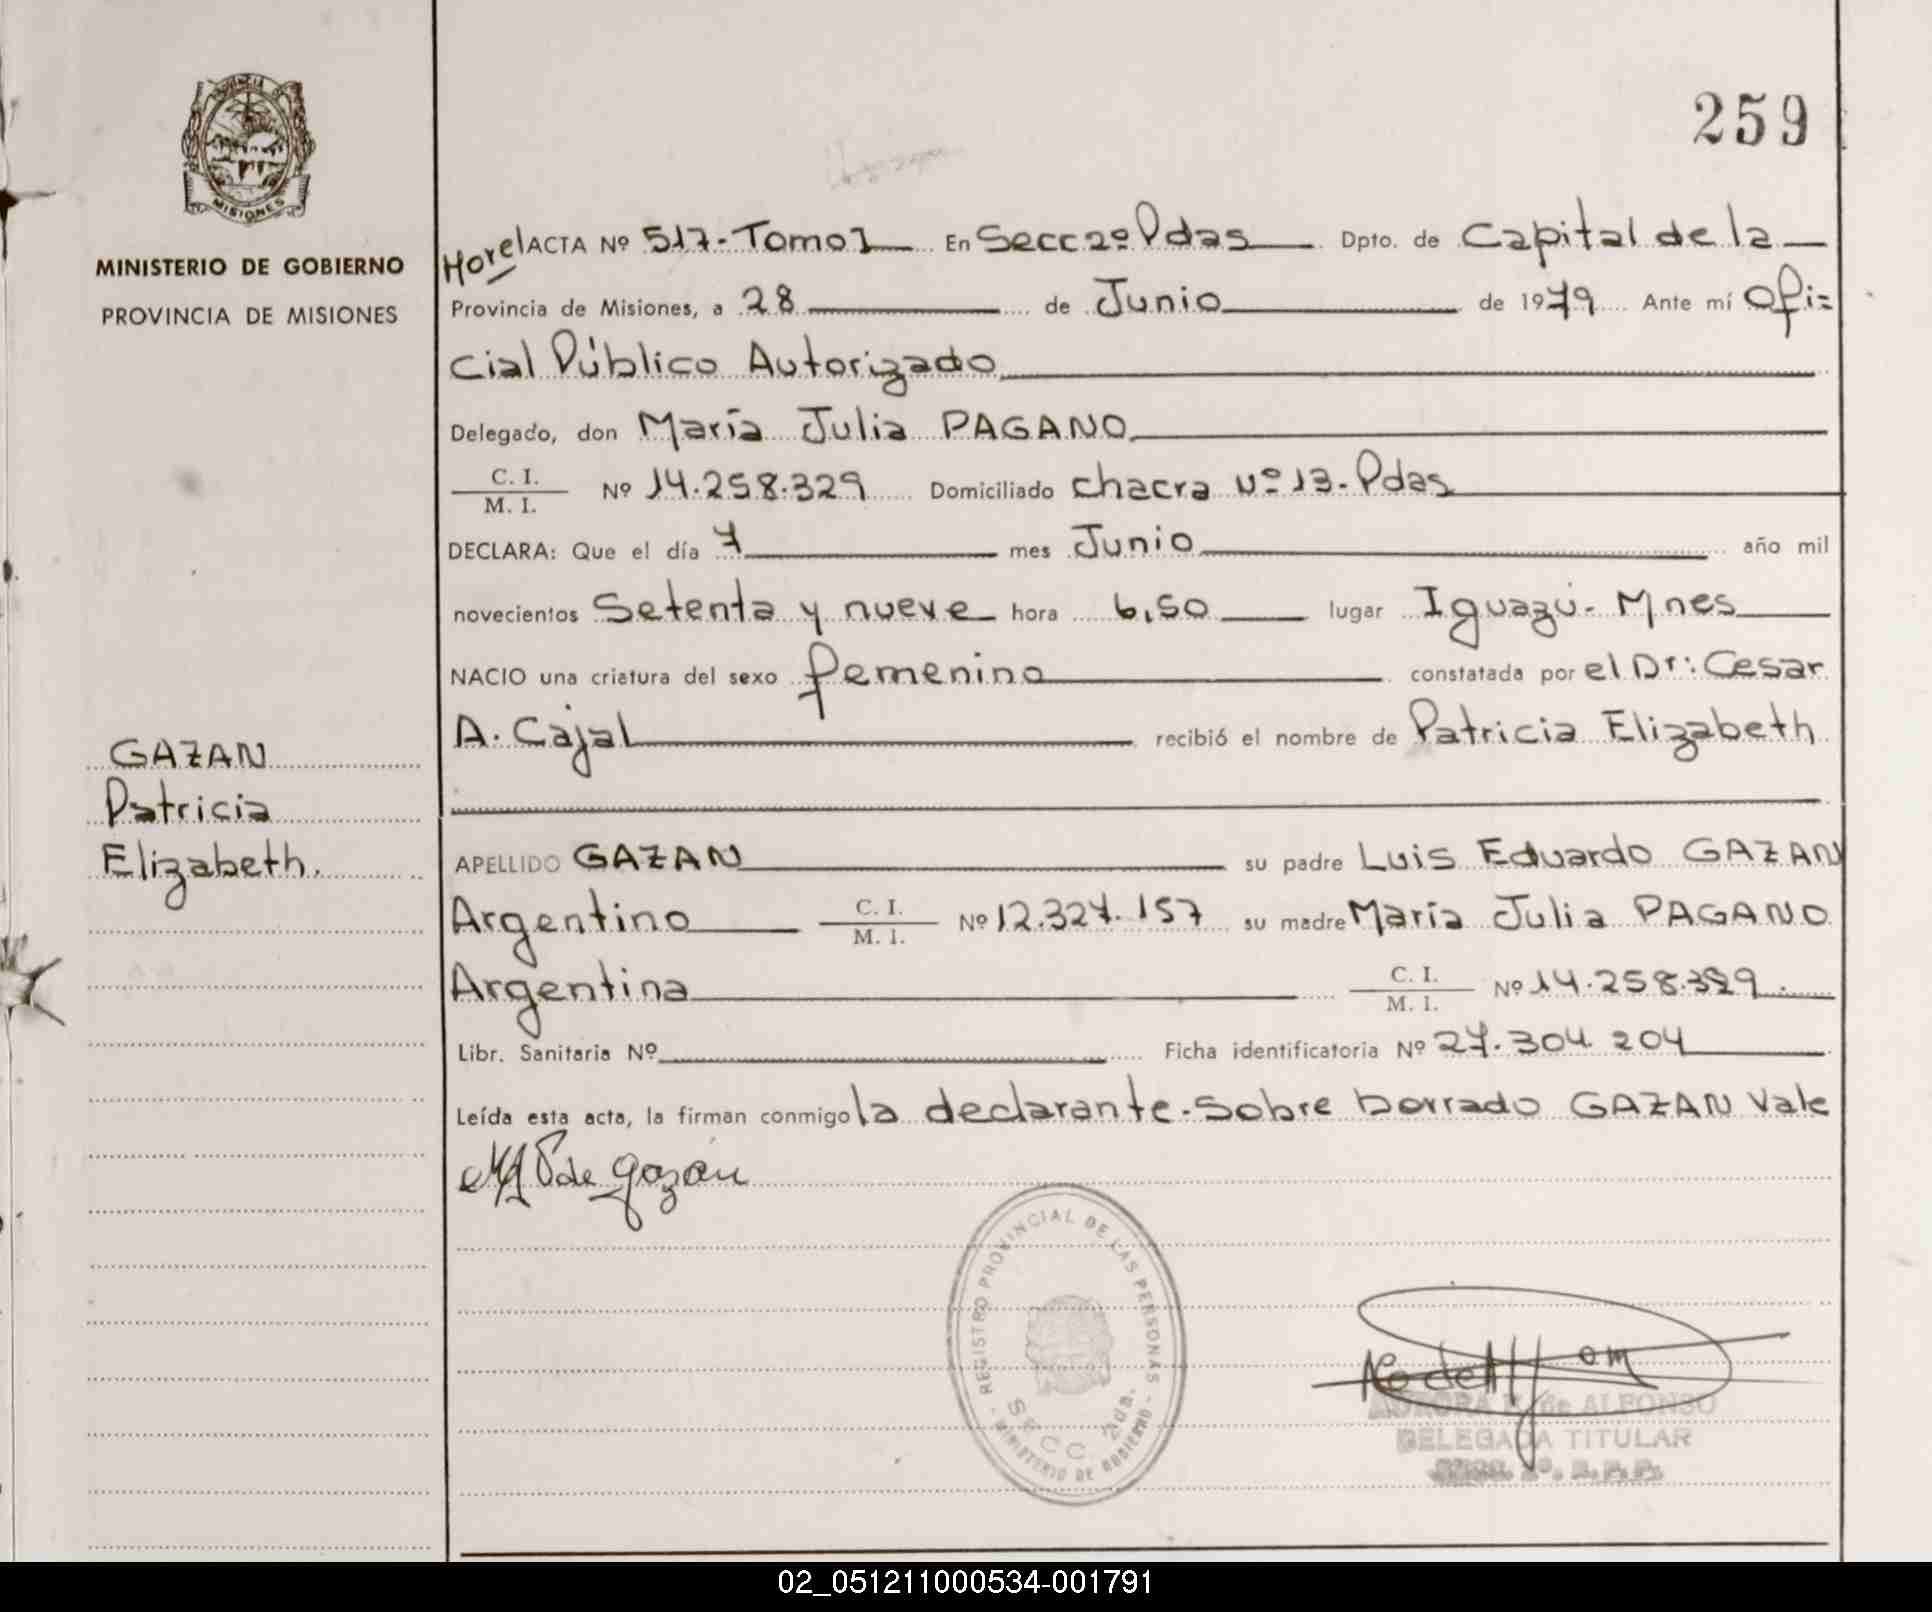 259
MISIONES
MINISTERIO DE GOBIERNO
PROVINCIA DE MISIONES
GAZAN
Patricia
Elizabeth.
ACTA Nº 517-Tomo1 En Secc 2º Pdas Dpto. de Capital de la
Provincia de Misiones, a 28 de Junio de 1979 Ante mí Ofi=
cial Público Autorizado
Delegado, don María Julia PAGANO
C. I.
M. I. Nº 14.258.329 Domiciliado chacra nº 13. Pdas
DECLARA: Que el día 7 mes Junio año mil
novecientos Setenta y nueve hora 6,50 lugar Iguazú- Mnes
NACIO una criatura del sexo femenino constatada por el Dr: Cesar
A. Cajal recibió el nombre de Patricia Elizabeth
APELLIDO GAZAN su padre Luis Eduardo GAZAN
Argentino C. I.
M. I. Nº 12.327.157 su madre María Julia PAGANO
Argentina C. I.
M. I. Nº 14.258.329.
Libr. Sanitaria Nº Ficha identificatoria Nº 27.304.204
Leída esta acta, la firman conmigo la declarante. Sobre borrado GAZAN Vale
P de Gazán
REGISTRO PROVINCIAL DE LAS PERSONAS
SECC 2da.
MINISTERIO DE GOBIERNO
de ALFONSO
DELEGADA TITULAR
02_051211000534-001791